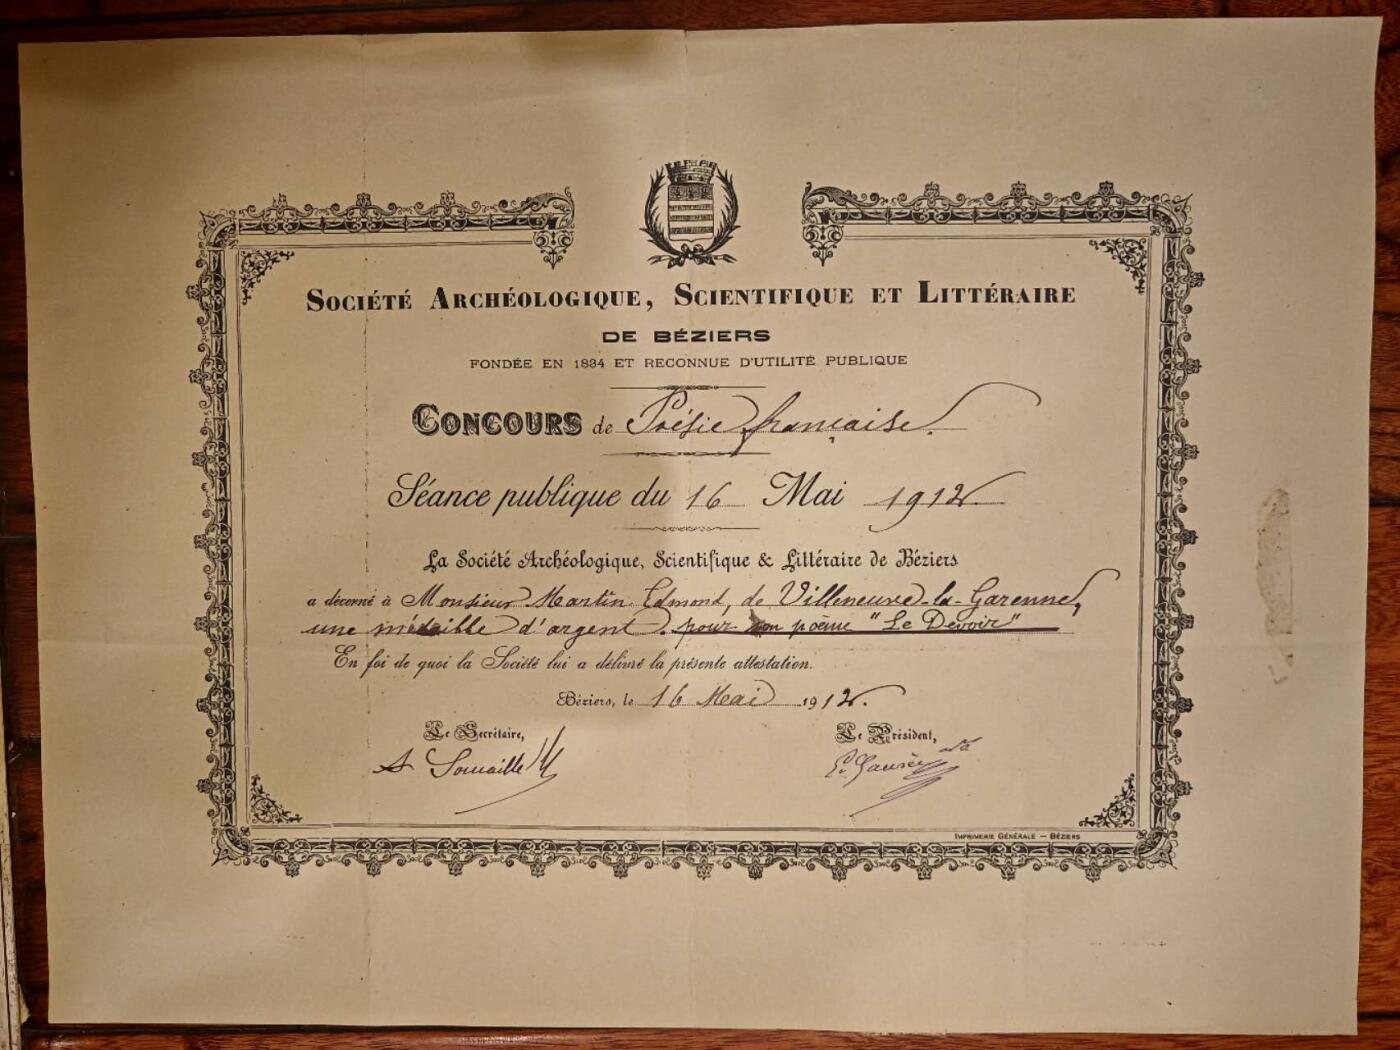 Société Archéologique, Scientifique et Littéraire
DE BÉZIERS
FONDÉE EN 1834 ET RECONNUE D'UTILITÉ PUBLIQUE
Concours de Poésie française.
Séance publique du 16 Mai 1912
La Société Archéologique, Scientifique & Littéraire de Béziers
a décerné à Monsieur Martin Edmond, de Villeneuve-la-Garenne,
une médaille d'argent pour son poème "Le Devoir"
En foi de quoi la Société lui a délivré la présente attestation.
Béziers, le 16 Mai 1912.
Le Secrétaire, Le Président,
A Soucaille
Imprimerie Générale — Béziers